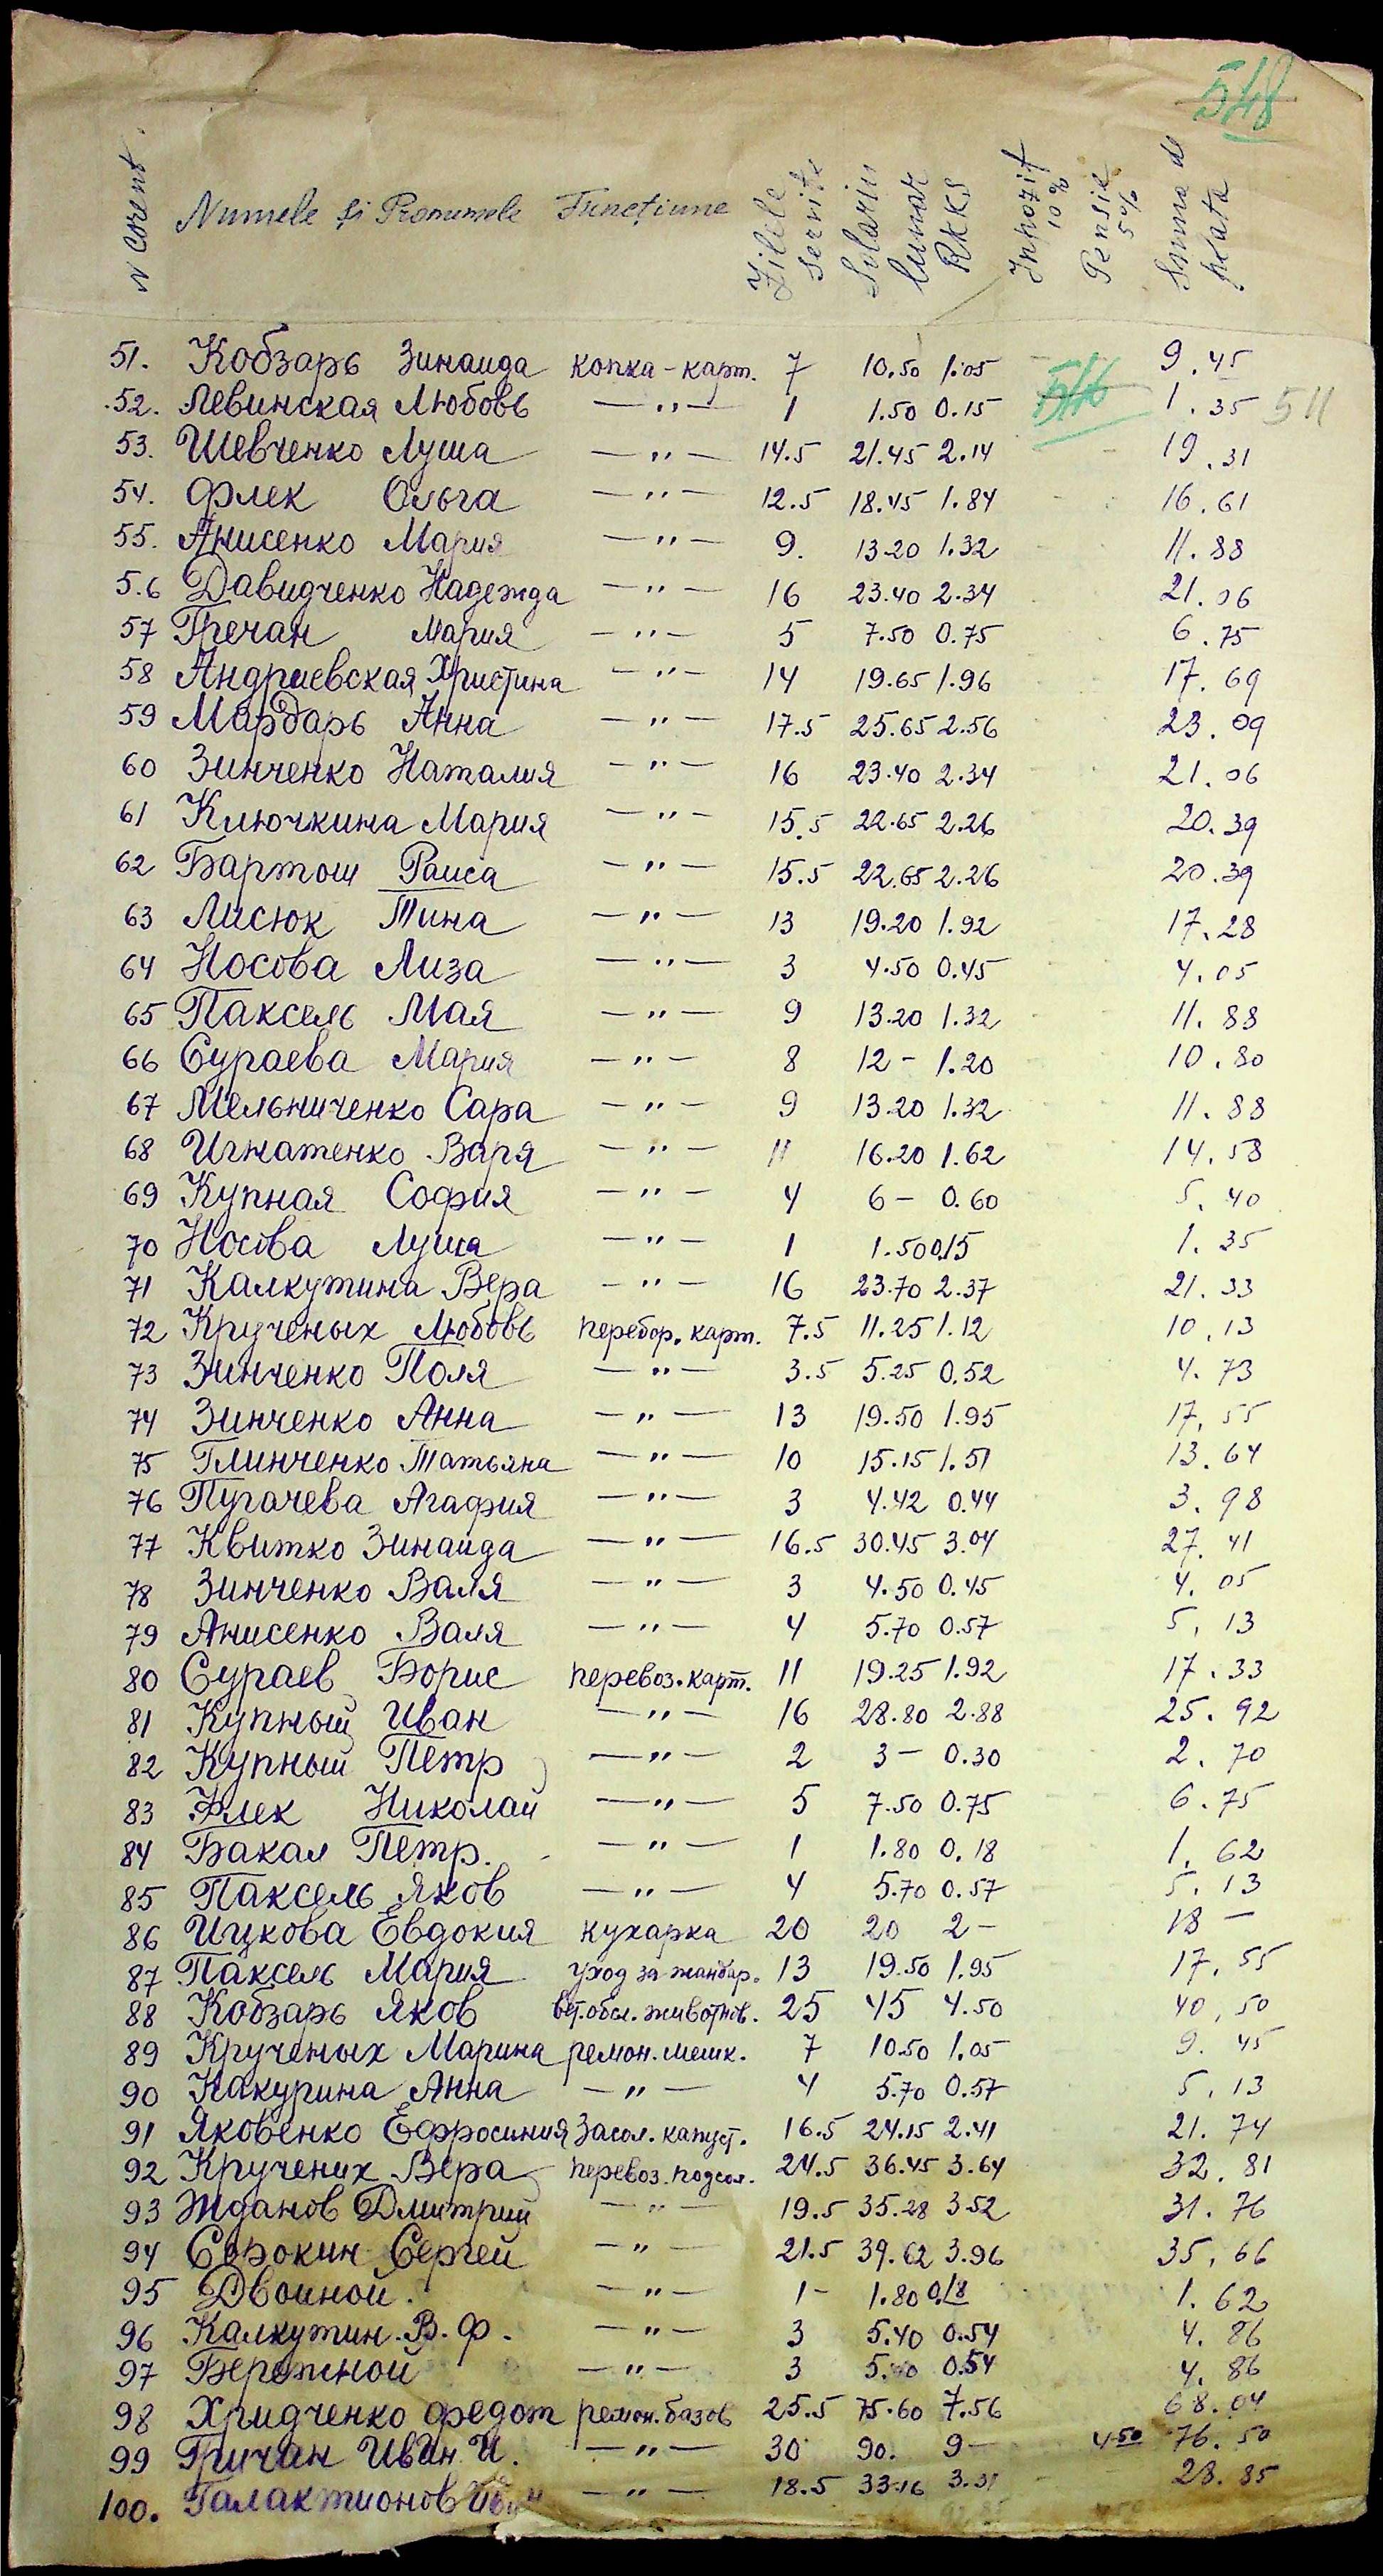 548
N Corent. Numele și Pronumele Funcțiune Zilele servite Solariu lunar RKKS Inpozit 10% Pensie 5% Suma de plata
51. Кобзарь Зинаида копка-карт. 7 10.50 1.05 9.45
52. Левинская Любовь —"— 1 1.50 0.15 516 1.35 511
53. Шевченко Луша —"— 14.5 21.45 2.14 19.31
54. Флек Ольга —"— 12.5 18.45 1.84 16.61
55. Анисенко Мария —"— 9. 13.20 1.32 11.88
5.6 Давидченко Надежда —"— 16 23.40 2.34 21.06
57 Гречан Мария —"— 5 7.50 0.75 6.75
58 Андриевская Христина —"— 14 19.65 1.96 17.69
59 Мардарь Анна —"— 17.5 25.65 2.56 23.09
60 Зинченко Наталия —"— 16 23.40 2.34 21.06
61 Ключкина Мария —"— 15.5 22.65 2.26 20.39
62 Бартош Раиса —"— 15.5 22.65 2.26 20.39
63 Лисюк Тина —"— 13 19.20 1.92 17.28
64 Носова Лиза —"— 3 4.50 0.45 4.05
65 Паксель Мая —"— 9 13.20 1.32 11.88
66 Сураева Мария —"— 8 12 – 1.20 10.80
67 Мельниченко Сара —"— 9 13.20 1.32 11.88
68 Игнатенко Варя —"— 11 16.20 1.62 14.58
69 Купная София —"— 4 6 – 0.60 5.40
70 Носова Луша —"— 1 1.50 0.15 1.35
71 Калкутина Вера —"— 16 23.70 2.37 21.33
72 Крученых Любовь перебор. карт. 7.5 11.25 1.12 10.13
73 Зинченко Поля —"— 3.5 5.25 0.52 4.73
74 Зинченко Анна —"— 13 19.50 1.95 17.55
75 Глинченко Татьяна —"— 10 15.15 1.51 13.64
76 Пугачева Агафия —"— 3 4.42 0.44 3.98
77 Квитко Зинаида —"— 16.5 30.45 3.04 27.41
78 Зинченко Валя —"— 3 4.50 0.45 4.05
79 Анисенко Валя —"— 4 5.70 0.57 5.13
80 Сураев Борис перевоз. карт. 11 19.25 1.92 17.33
81 Купный Иван —"— 16 28.80 2.88 25.92
82 Купный Петр —"— 2 3 – 0.30 2.70
83 Флек Николай —"— 5 7.50 0.75 6.75
84 Бакал Петр. —"— 1 1.80 0.18 1.62
85 Паксель Яков —"— 4 5.70 0.57 5.13
86 Ицкова Евдокия кухарка 20 20 2 – 18 –
87 Паксель Мария уход за 13 19.50 1.95 17.55
88 Кобзарь Яков вет. обсл. животнов. 25 45 4.50 40.50
89 Крученых Марина ремон. мешк. 7 10.50 1.05 9.45
90 Какурина Анна —"— 4 5.70 0.57 5.13
91 Яковенко Ефросиния Засол. капуст. 16.5 24.15 2.41 21.74
92 Кручених Вера перевоз. подсол. 24.5 36.45 3.64 32.81
93 Жданов Дмитрий —"— 19.5 35.28 3.52 31.76
94 Сорокин Сергей —"— 21.5 39.62 3.96 35.66
95 Двоиной. —"— 1 – 1.80 0.18 1.62
96 Калкутин. В. Ф. —"— 3 5.40 0.54 4.86
97 Бережной —"— 3 5.40 0.54 4.86
98 Хридченко Федот ремон. базов 25.5 75.60 7.56 68.04
99 Гричан Иван И. —"— 30 90. 9 – 4.50 76.50
100. Галактионов Иван —"— 18.5 33.16 3.31 28.85